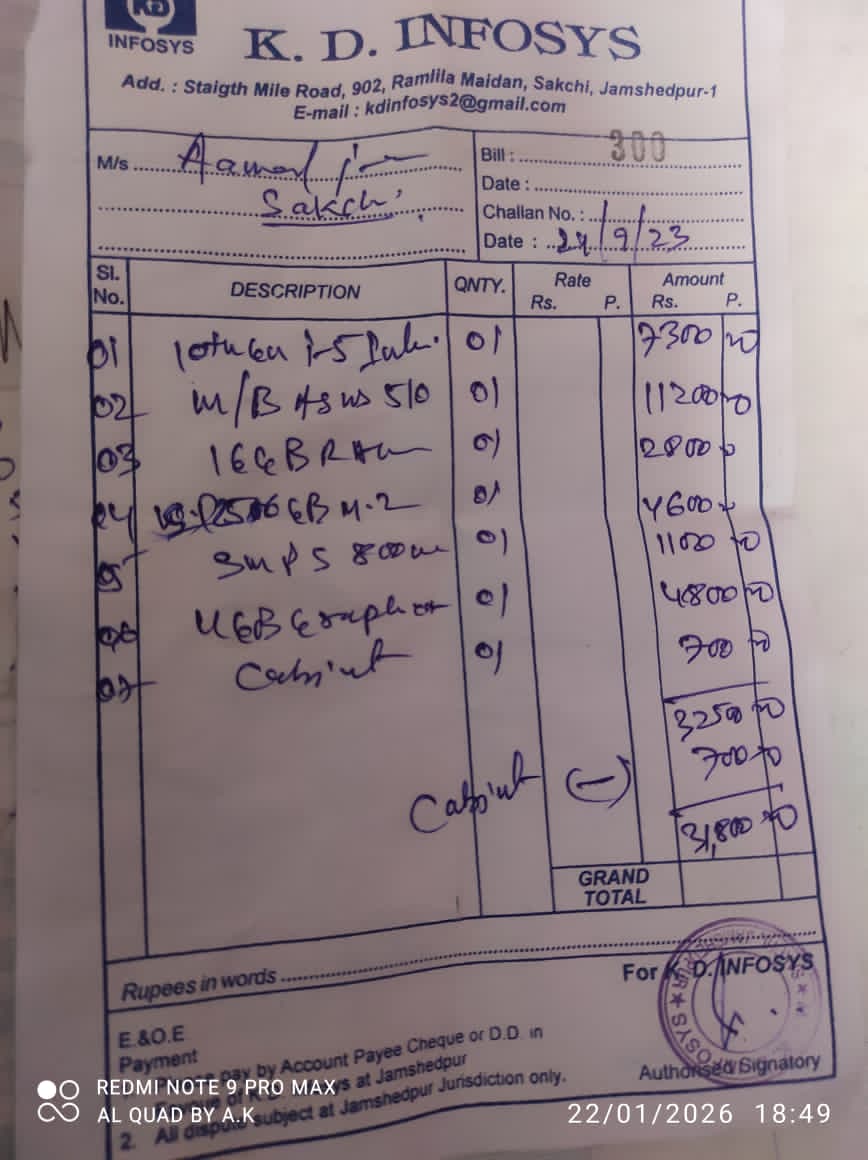 KD
INFOSYS
K. D. INFOSYS
Add. : Staigth Mile Road, 902, Ramlila Maidan, Sakchi, Jamshedpur-1
E-mail : kdinfosys2@gmail.com
M/s
Sakchi
Bill : 300
Date :
Challan No. :
Date : 24/9/23
Sl. No. DESCRIPTION QNTY. Rate Rs. P. Amount Rs. P.
01 i-5 01 7300
02 M/B Asus 510 01 11200
03 16GB RAM 01 2800
04 GB M.2 01 4600
05 SMPS 800w 01 1100
06 4GB Graphic 01 4800
07 Cabinet 01 700
3250
700
Cabinet (-)
31,800
GRAND TOTAL
Rupees in words
For K. D. INFOSYS
E.&O.E.
Payment
pay by Account Payee Cheque or D.D. in
at Jamshedpur
2. All subject at Jamshedpur Jurisdiction only.
Authorised Signatory
REDMI NOTE 9 PRO MAX
AL QUAD BY A.K
22/01/2026 18:49